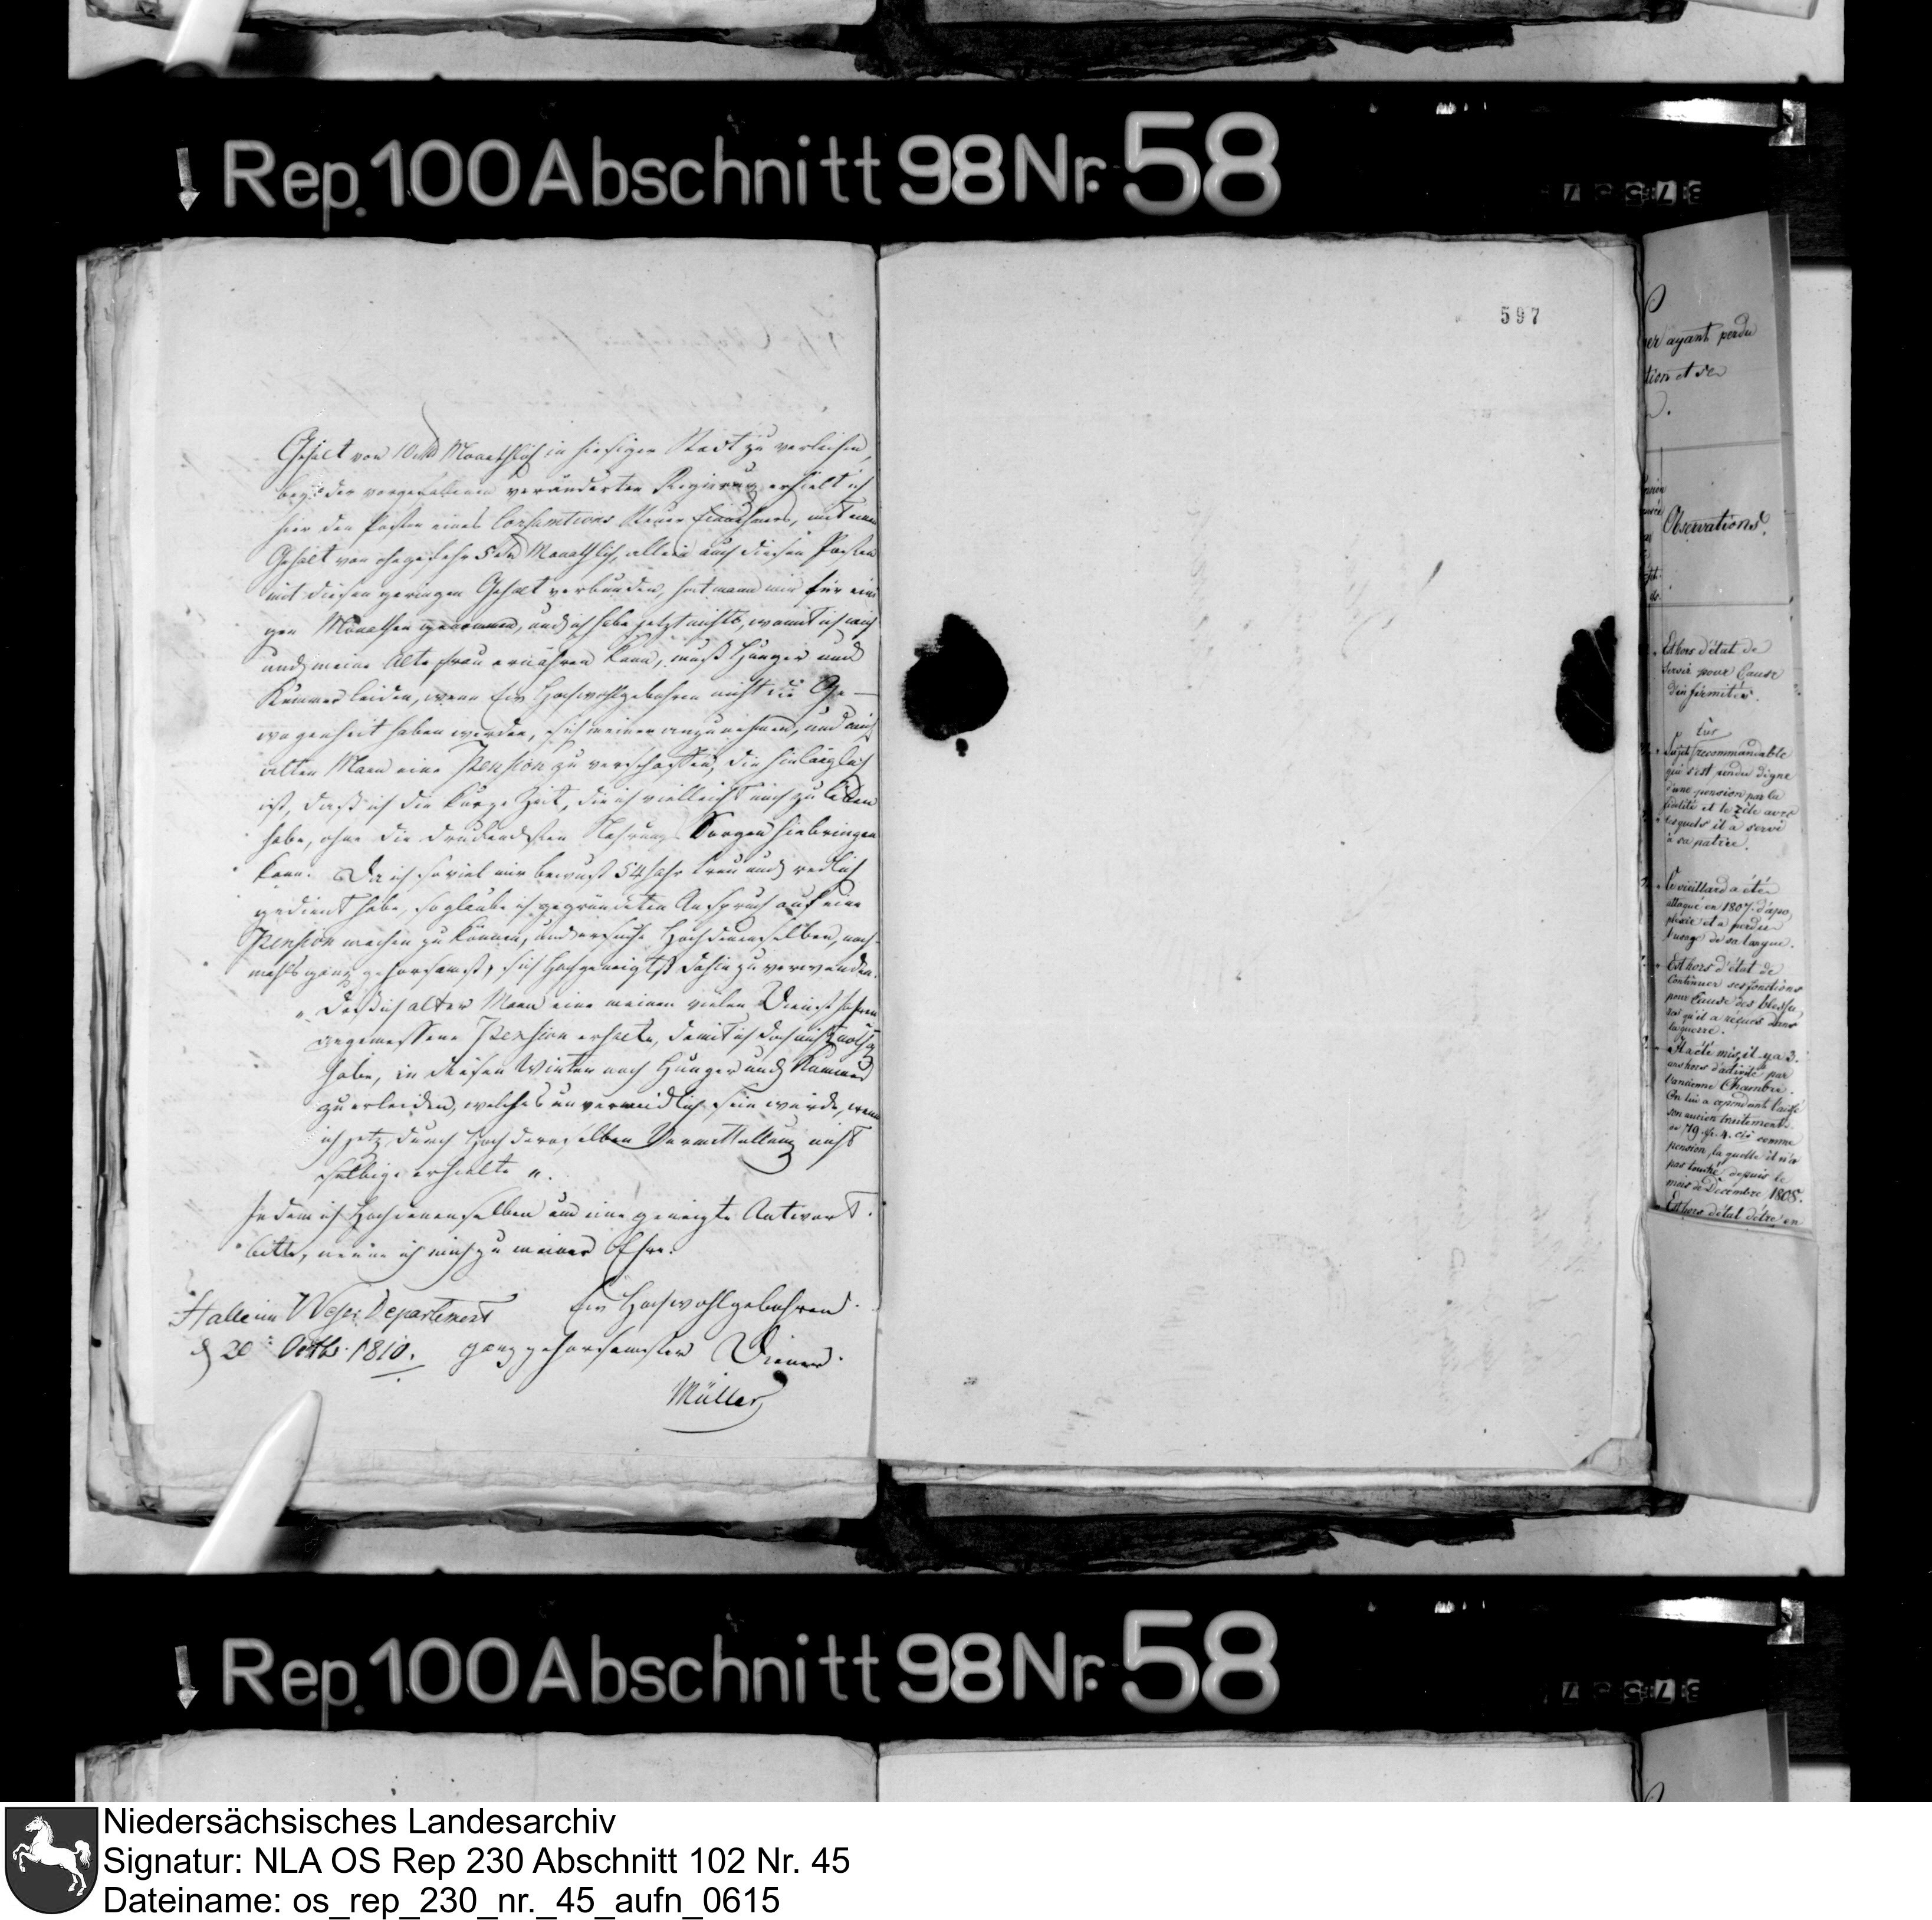 Rep. 100 Abschnitt 98 Nr. 58
Gehalt von 10 Monathlich in hiesiger Stadt zu verleihen,
bey der vorgefallenen veränderten Regierung erhielt ich
hier den Posten eines Consumtions Steuer Einnehmers, mit einem
Gehalt von ohngefehr 5 Monathlich, allein auch diesen Posten
mit diesen geringen Gehalt verbunden, hat mann mir für eini
gen Monathen genommen, und ich habe jetzt nichts, womit ich mich
und meine alte Frau ernähren kann, muß Hunger und
Kummer leiden, wenn Ew Hochwohlgebohren nicht die Ge-
wogenheit haben werden, sich meiner anzunehmen, und mich
alten Mann eine Pension zu verschaffen, die hinlänglich
ist, daß ich die kurze Zeit, die ich vielleicht noch zu leben
habe, ohne die drückendsten Nahrungs Sorgen hinbringen
kann. Da ich soviel mir bewust 54 Jahr treu und redlich
gedient habe, so glaube ich gegründeten Anspruch auf eine
Pension machen zu können, und ersuche Hochdenenselben, noch-
mahls ganz gehorsamst, sich Hochgeneigtst dahin zu verwenden.
„ Daß ich alter Mann eine meinen vielen Dienst Jahren
angemessene Pension erhalte, damit ich doch nicht nöthig
habe, in diesen Winter noch Hunger und Kummer
zu erleiden, welches unvermeidlich sein würde, wenn
ich jetz durch Hochderoselben Vermittellung nicht
selbige erhielte „.
Indem ich Hochdenenselben um eine geneigte Antwort
bitte, nenne ich mich zu meiner Ehre.
Halle im Weser Departement
Ew Hochwohlgebohren
d 20 Octb. 1810.
ganz gehorsamster Diener
Müller
597
ayant perdu
tion et se
Observations.
Est hors d'état de
servir pour Cause
d'infirmités.
très
Sujet recommandable
qui s'est rendu digne
d'une pension par la
fidélité et le zèle avec
lesquels il a servi
à sa patrie.
Ce vieillard a été
attaqué en 1807. d'apo,
plexie et a perdu
l'usage de sa langue.
Est hors d'état de
Continuer ses fonctions
pour Cause des blessu,
res qu'il a reçues dans
la guerre.
Il a été mis, il y a 3.
ans hors d'activité par
l'ancienne Chambre.
On lui a cependant laissé
son ancien traitement
de 79. fr. 4. cs comme
pension, laquelle il n'a
pas touché depuis le
mois de Decembre 1808.
Est hors d'état d'être en
Rep. 100 Abschnitt 98 Nr. 58
Niedersächsisches Landesarchiv
Signatur: NLA OS Rep 230 Abschnitt 102 Nr. 45
Dateiname: os_rep_230_nr._45_aufn_0615